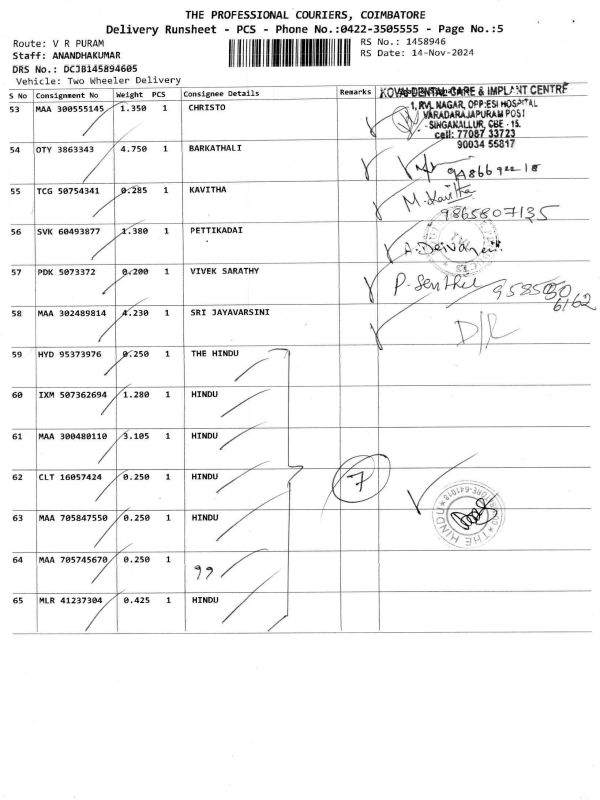 THE PROFESSIONAL COURIERS, COIMBATORE
Delivery Runsheet - PCS - Phone No.:0422-3505555 - Page No.:5
Route: V R PURAM
RS No.: 1458946
Staff: ANANDHAKUMAR
RS Date: 14-Nov-2024
DRS No.: DCJB145894605
Vehicle: Two Wheeler Delivery
S No Consignment No Weight PCS Consignee Details Remarks
KOVAI DENTAL CARE & IMPLANT CENTRE
1, RVL NAGAR, OPP:ESI HOSPITAL
VARADARAJAPURAM POST
SINGANALLUR, CBE - 15.
cell: 77087 33723
90034 55817
53 MAA 300555145 1.350 1 CHRISTO
54 OTY 3863343 4.750 1 BARKATHALI
55 TCG 50754341 0.285 1 KAVITHA M. Kavitha
9865807135
56 SVK 60493877 1.380 1 PETTIKADAI
57 PDK 5073372 0.200 1 VIVEK SARATHY P. Senthil
58 MAA 302489814 4.230 1 SRI JAYAVARSINI D/R
59 HYD 95373976 0.250 1 THE HINDU
60 IXM 507362694 1.280 1 HINDU
61 MAA 300480110 3.105 1 HINDU
62 CLT 16057424 0.250 1 HINDU 7
63 MAA 705847550 0.250 1 HINDU
THE HINDU
64 MAA 705745670 0.250 1 99
65 MLR 41237304 0.425 1 HINDU